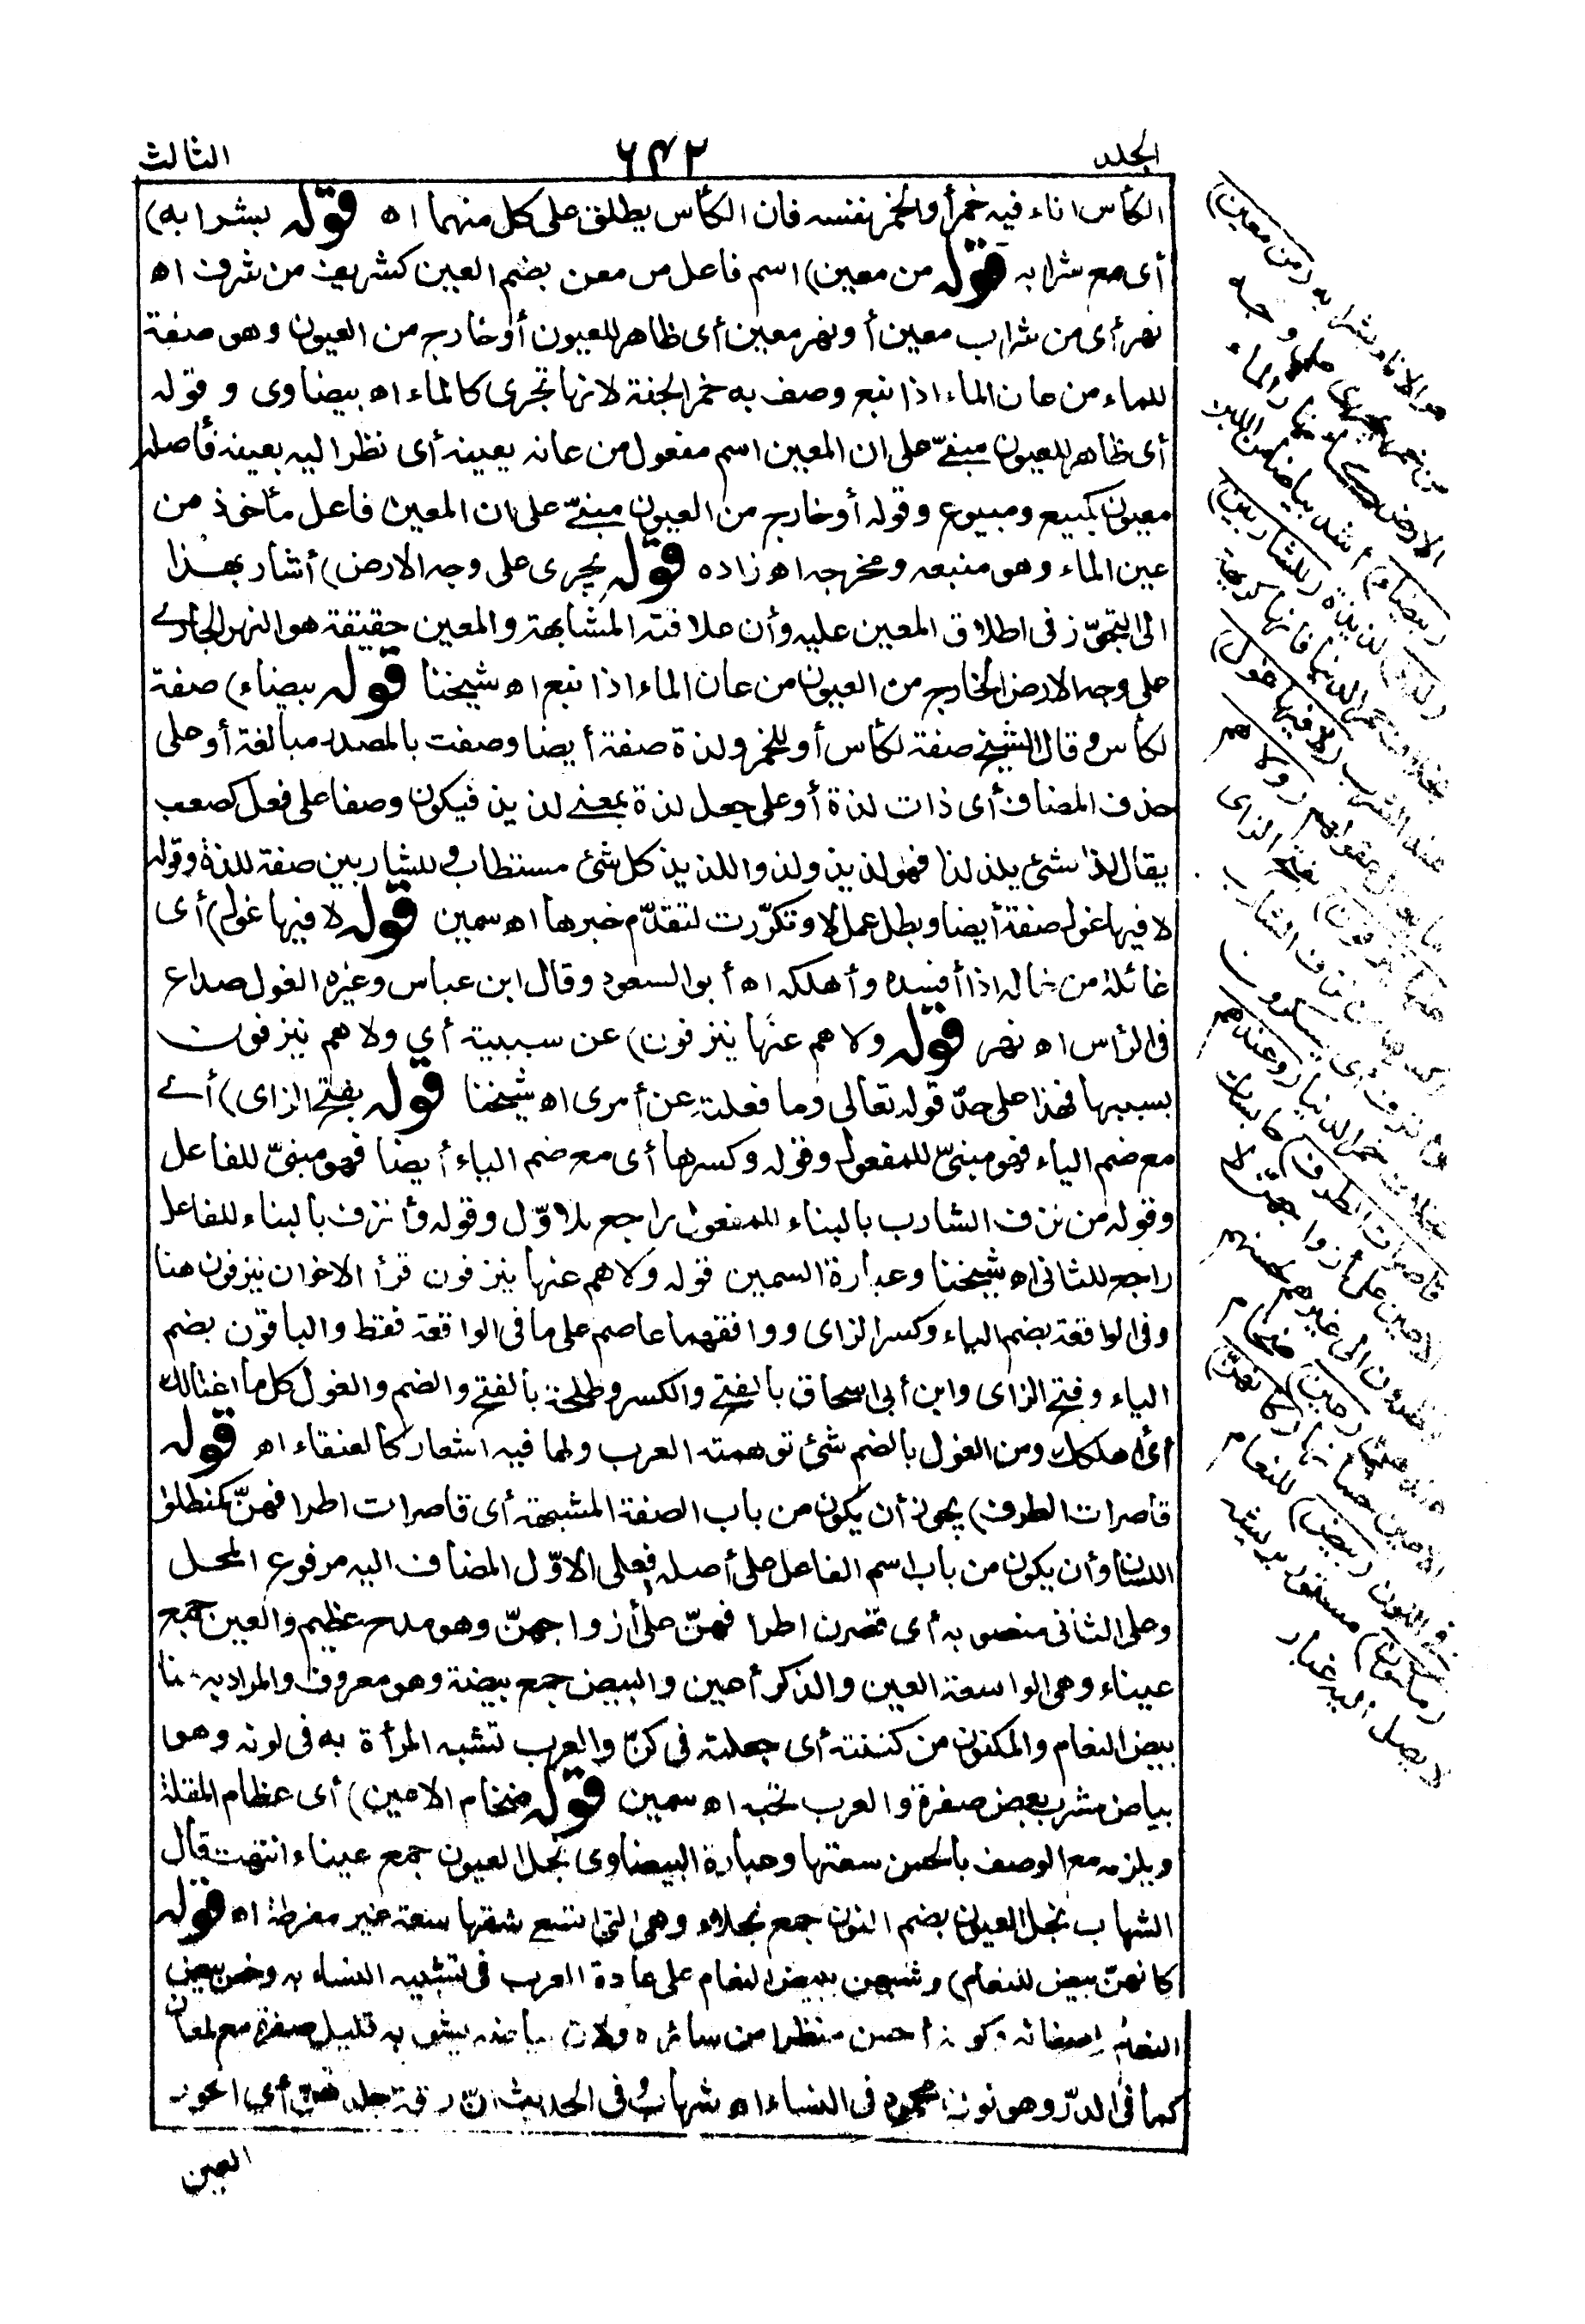 الجلد ٦٤٢ الثالث
الكأس اناء فيه خمر أو الخمر نفسه فان الكأس يطلق على كل منهما اه قوله بشرابه)
أى مع شرابه قوله من معين) اسم فاعل من معن بضم العين كشريف من شرف اه
نهر أى من شراب معين أو نهر معين أى ظاهر للعيون أو خارج من العيون وهو صفة
للماء من عان الماء اذا نبع وصف به خمر الجنة لانها تجرى كالماء اه بيضاوى وقوله
أى ظاهر للعيون مبنىّ على ان المعين اسم مفعول من عانه يعينه أى نظر اليه بعينه فأصله
معيون كمبيع ومبيوع وقوله أو خارج من العيون مبنىّ على ان المعين فاعل مأخوذ من
عين الماء وهو منبعه ومخرجه اه زاده قوله يجرى على وجه الارض) أشار بهذا
الى التجوّز فى اطلاق المعين عليه وأن علاقته المشابهة والمعين حقيقة هو النهر الجارى
على وجه الارض الخارج من العيون من عان الماء اذا نبع اه شيخنا قوله بيضاء) صفة
لكأس وقال الشيخ صفة لكأس أو للخمر ولذة صفة أيضا وصفت بالمصدر مبالغة أو على
حذف المضاف أى ذات لذة أو على جعل لذة بمعنى لذيذ فيكون وصفا على فعل كصعب
يقال لذ الشئ يلذ لذا فهو لذيذ ولذ واللذيذ كل شئ مستطاب وللشاربين صفة للذة وقوله
لا فيها غول صفة أيضا وبطل عمل لا وتكرّرت لتقدّم خبرها اه سمين قوله لا فيها غول) أى
غائلة من غاله اذا أفسده وأهلكه اه أبو السعود وقال ابن عباس وغيره الغول صداع
فى الرأس اه نهر قوله ولا هم عنها ينزفون) عن سببية أي ولا هم ينزفون
بسببها فهذا على حدّ قوله تعالى وما فعلته عن أمرى اه شيخنا قوله بفتح الزاى) أى
مع ضم الياء فهو مبنىّ للمفعول وقوله وكسرها أى مع ضم الياء أيضا فهو مبنىّ للفاعل
وقوله من نزف الشارب بالبناء للمفعول راجع للاوّل وقوله وأنزف بالبناء للفاعل
راجع للثانى اه شيخنا وعبارة السمين قوله ولا هم عنها ينزفون قرأ الاخوان ينزفون هنا
وفى الواقعة بضم الياء وكسر الزاى ووافقهما عاصم على ما فى الواقعة فقط والباقون بضم
الياء وفتح الزاى وابن أبى اسحاق بالفتح والكسر وطلحة بالفتح والضم والغول كل ما اغتالك
أى أهلكك ومن الغول بالضم شئ توهمته العرب ولها فيه اشعار كالعنقاء اه قوله
قاصرات الطرف) يجوز أن يكون من باب الصفة المشبهة أى قاصرات اطرافهنّ كمنطلق
اللسان وأن يكون من باب اسم الفاعل على أصله فعلى الاوّل المضاف اليه مرفوع المحل
وعلى الثانى منصوبه أى قصرن اطرافهنّ على أزواجهنّ وهو مدح عظيم والعين جمع
عيناء وهى الواسعة العين والذكر أعين والبيض جمع بيضة وهو معروف والمراد به هنا
بيض النعام والمكنون من كننته أى جعلته فى كنّ والعرب تشبه المرأة به فى لونه وهو
بياض مشرب بعض صفرة والعرب تحبه اه سمين قوله ضخام الاعين) أى عظام المقلة
ويلزمه مع الوصف بالحسن سعتها وعبارة البيضاوى نجل العيون جمع عيناء انتهت قال
الشهاب نجل العيون بضم النون جمع نجلاء وهى التى اتسع شقها سعة غير مفرطة اه قوله
كانهنّ بيض للنعام) وشبهن ببيض النعام على عادة العرب فى تشبيه النساء به وخص بيض
النعام لصفائه وكونه أحسن منظرا من سائره ولان بياضه يشوبه قليل صفرة مع لمعان
كما فى الدرّ وهو لون محمود فى النساء اه شهاب وفى الحديث انّ رقة جلدهن أى الحور
العين
هو الاناء بشرابه (من معين)
من خمر يجرى على وجه
الارض كأنهار الماء
(بيضاء) أشد بياضا من اللبن
(لذة) لذيذة (للشاربين)
بخلاف خمر الدنيا فانها كريهة
عند الشرب (لا فيها غول)
ما يغتال عقولهم (ولا هم
عنها ينزفون) بفتح الزاى
وكسرها من نزف الشارب
وأنزف أى يسكرون
بخلاف خمر الدنيا (وعندهم
قاصرات الطرف) حابسات
الاعين على أزواجهن لا
ينظرن الى غيرهم لحسنهم
عندهن (عين) ضخام
الاعين حسانها (كأنهنّ)
فى اللون (بيض) للنعام
(مكنون) مستور بريشه
لا يصل اليه غبار